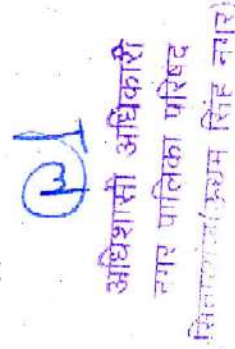 अधिशासी अधिकारी
नगर पालिका परिषद
सिंह नगर)